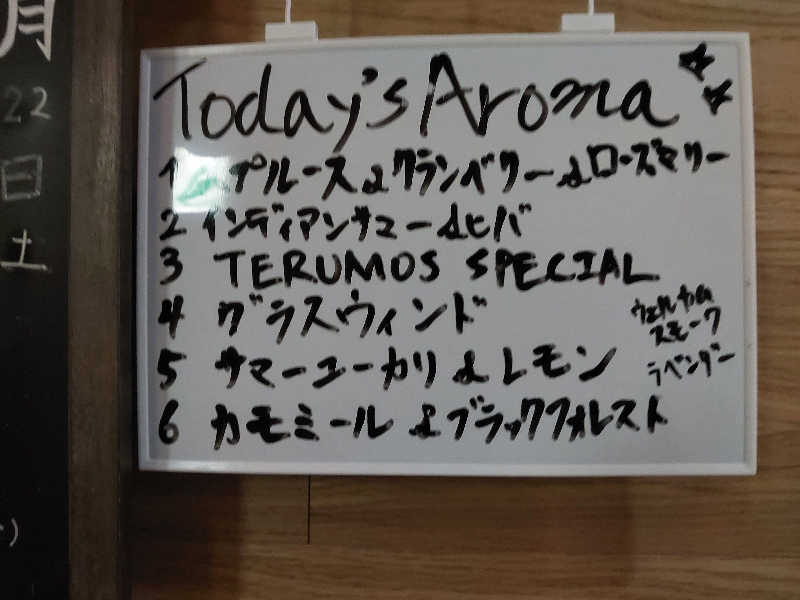 月
22
日
土
Today's Aroma ☆☆
1 スプルース&クランベリー&ローズマリー
2 インディアンサマー&ヒバ
3 TERUMOS SPECIAL
4 グラスウィンド
5 サマーユーカリ&レモン
6 カモミール&ブラックフォレスト
ウェルカム
スモーク
ラベンダー